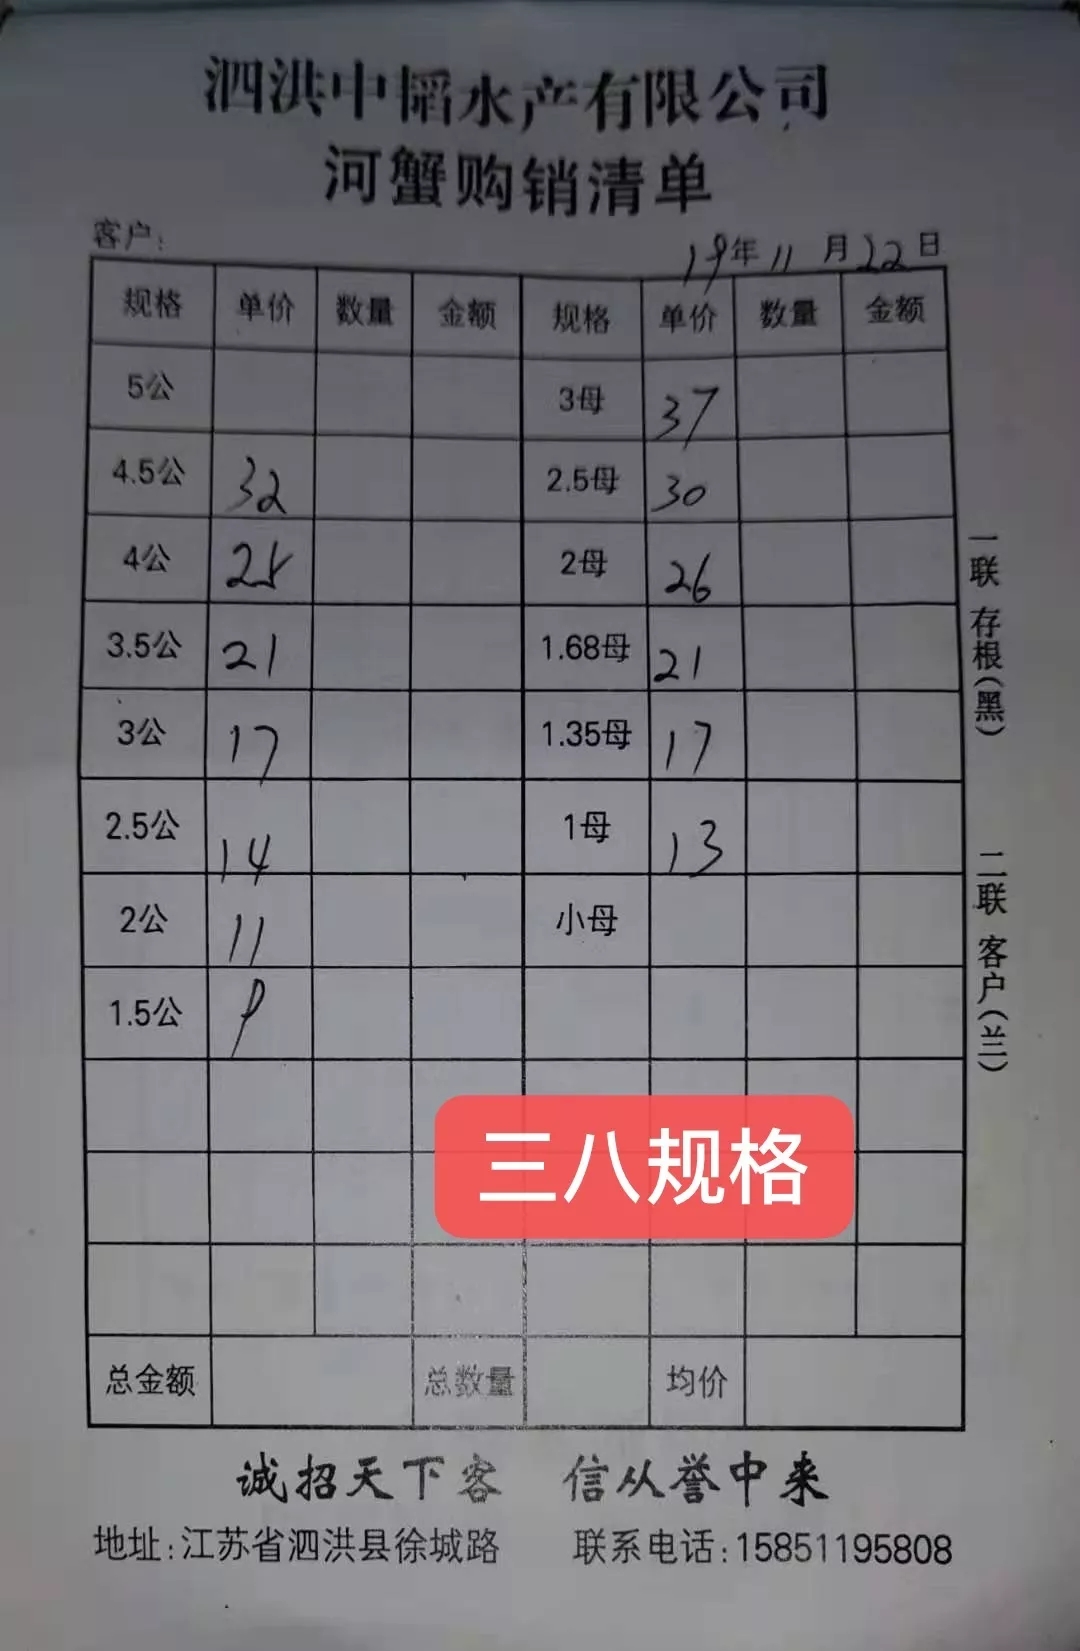 泗洪中韬水产有限公司
河蟹购销清单
客户: 19年11月22日
规格 单价 数量 金额 规格 单价 数量 金额
5公 3母 37
4.5公 32 2.5母 30
4公 25 2母 26
3.5公 21 1.68母 21
3公 17 1.35母 17
2.5公 14 1母 13
2公 11 小母
1.5公 9
三八规格
总金额 总数量 均价
诚招天下客 信从誉中来
地址:江苏省泗洪县徐城路 联系电话:15851195808
一联 存根(黑) 二联 客户(兰)